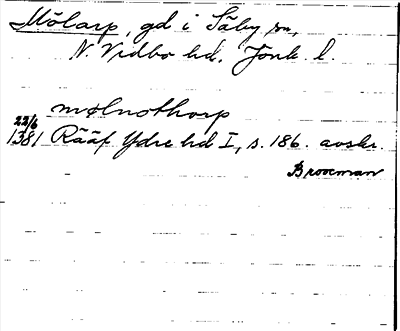 Mölarp, gd i Säby sn,
N. Vedbo hd. Jönk. l.
mølnothorp
22/6
1381 Rääf Ydre hd I, s. 186. avskr.
Brooman